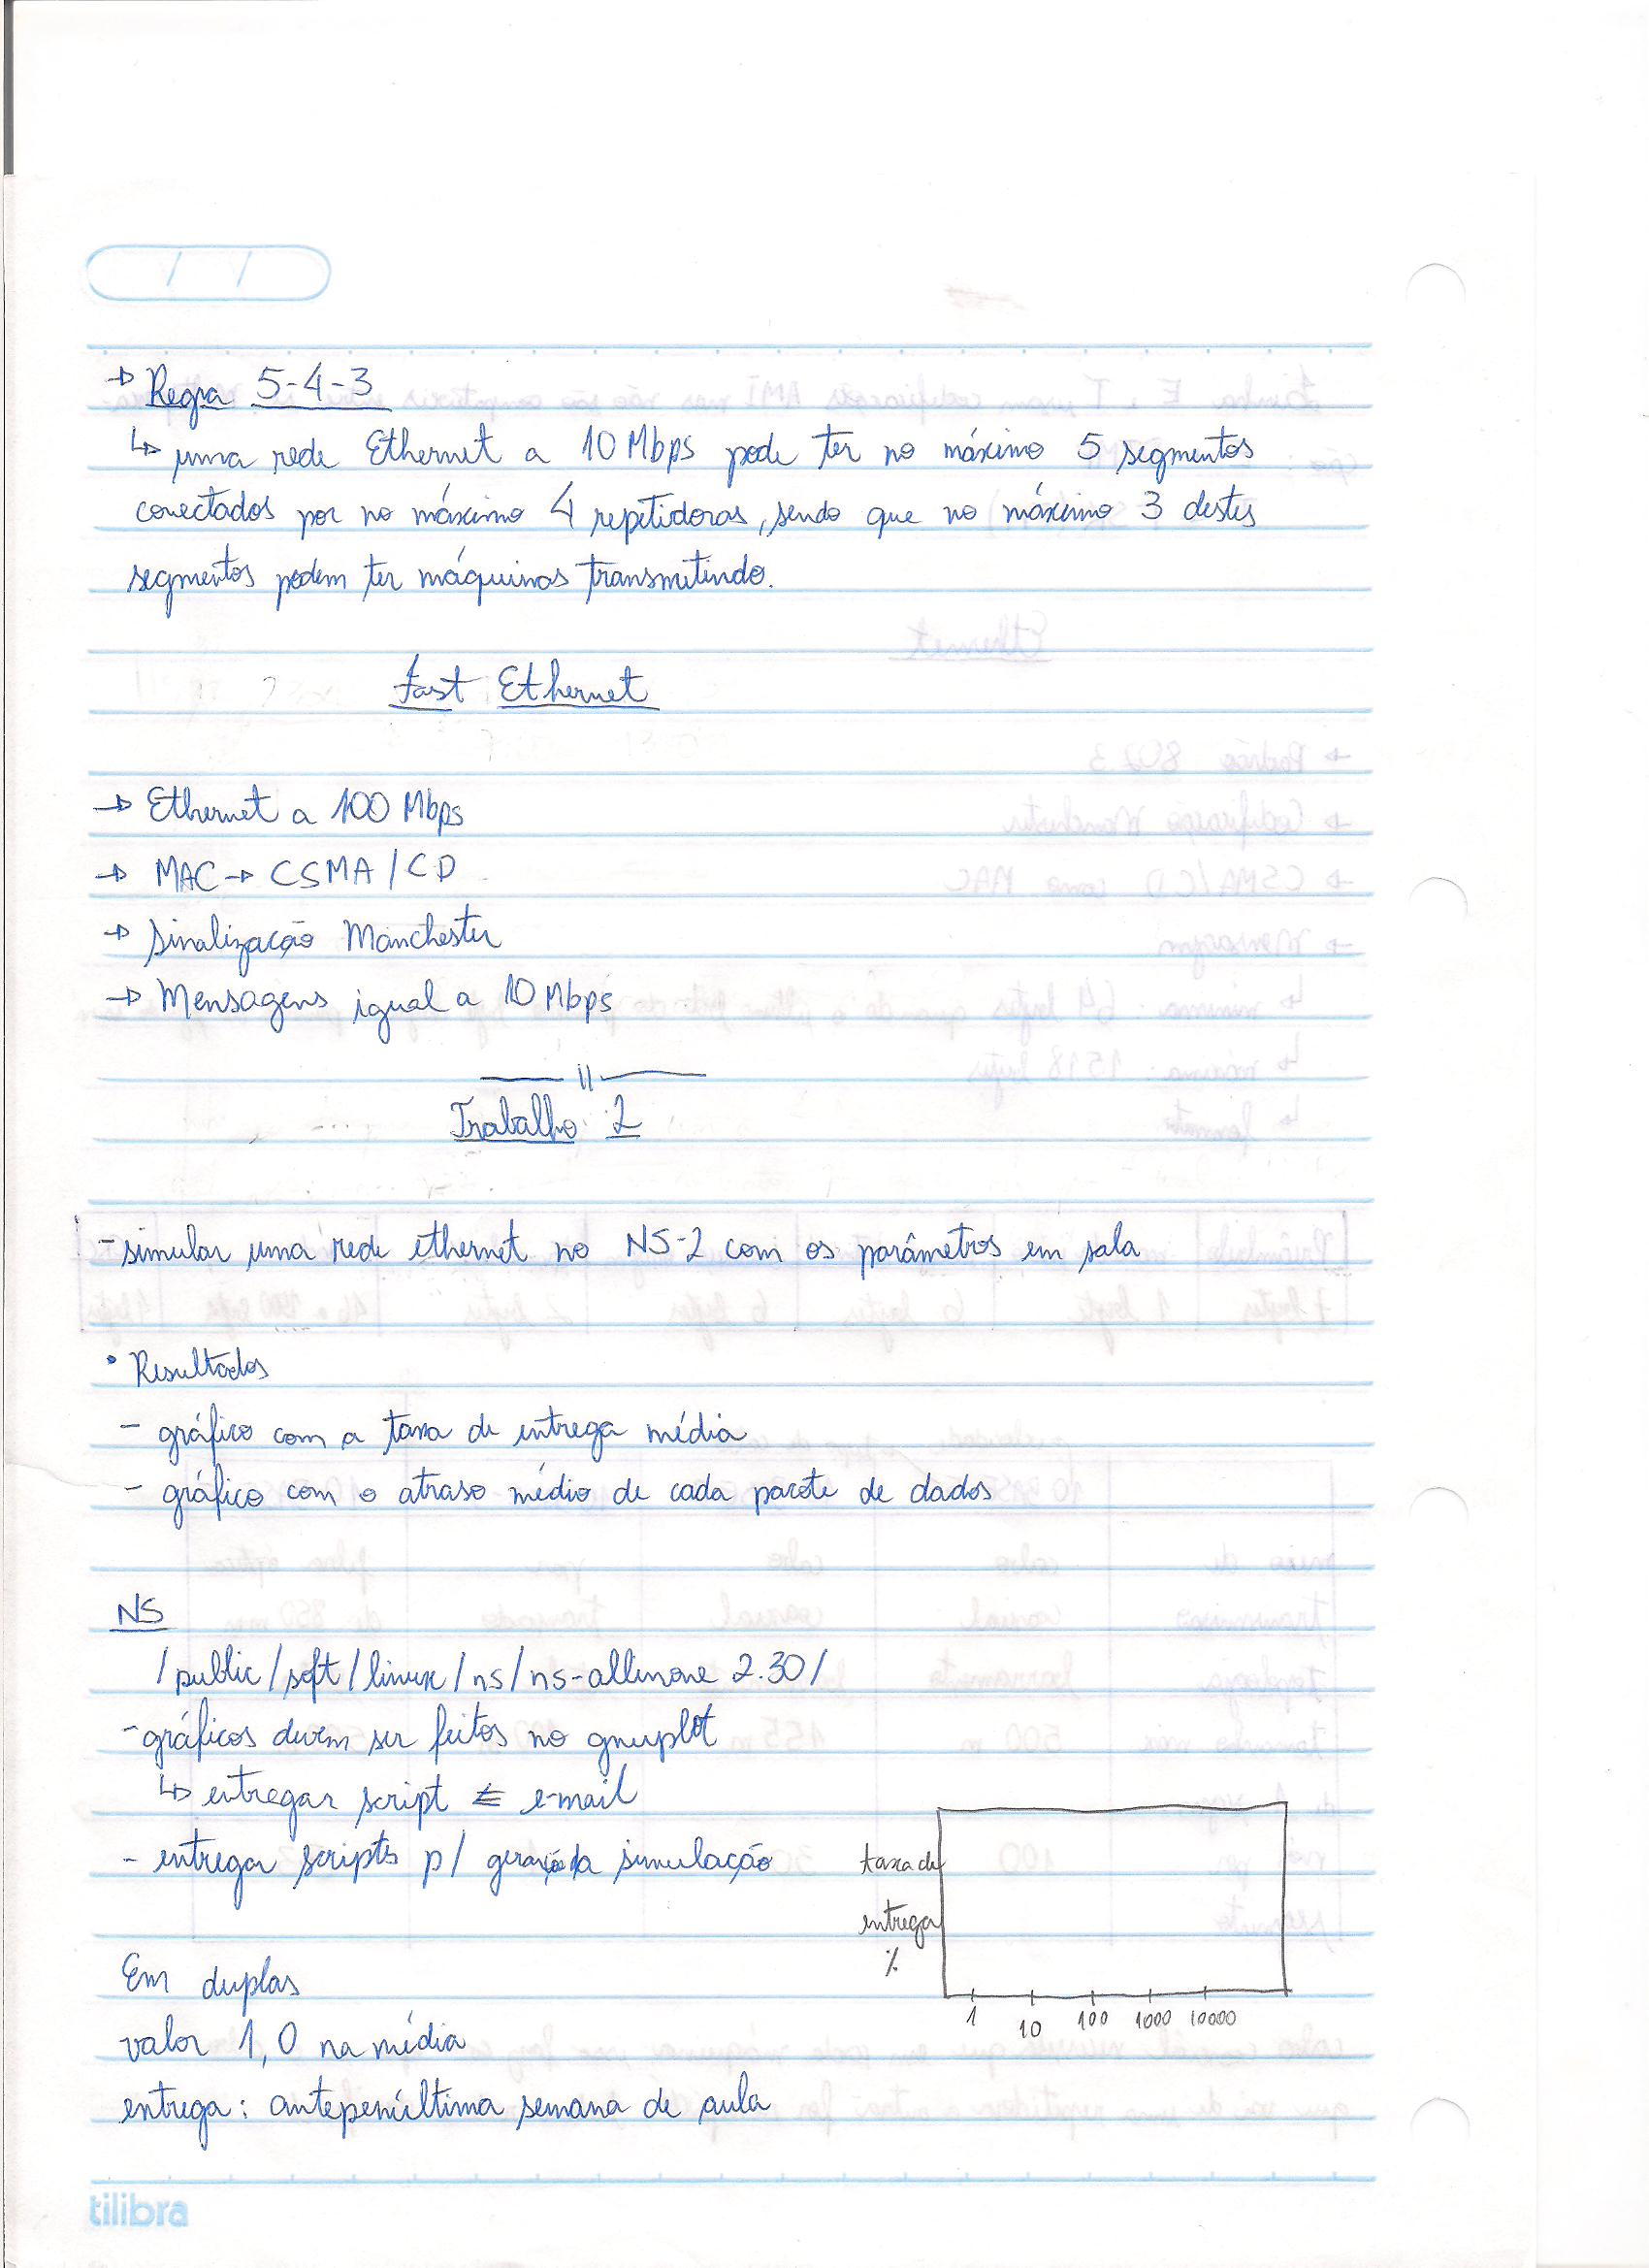 → Regra 5-4-3
↳ uma rede Ethernet a 10 Mbps pode ter no máximo 5 segmentos
conectados por no máximo 4 repetidoras, sendo que no máximo 3 destes
segmentos podem ter máquinas transmitindo.
Fast Ethernet
→ Ethernet a 100 Mbps
→ MAC → CSMA/CD
→ Sinalização Manchester
→ Mensagens igual a 10 Mbps
Trabalho 2
- simular uma rede ethernet no NS-2 com os parâmetros em sala
• Resultados
- gráfico com a taxa de entrega média
- gráfico com o atraso médio de cada pacote de dados
NS
/public/soft/linux/ns/ns-allinone 2.30/
- gráficos devem ser feitos no gnuplot
↳ entregar script E e-mail
- entregar scripts p/ geração da simulação
taxa de
entrega
%
1 10 100 1000 10000
Em duplas
valor 1,0 na média
entrega: antepenúltima semana de aula
tilibra